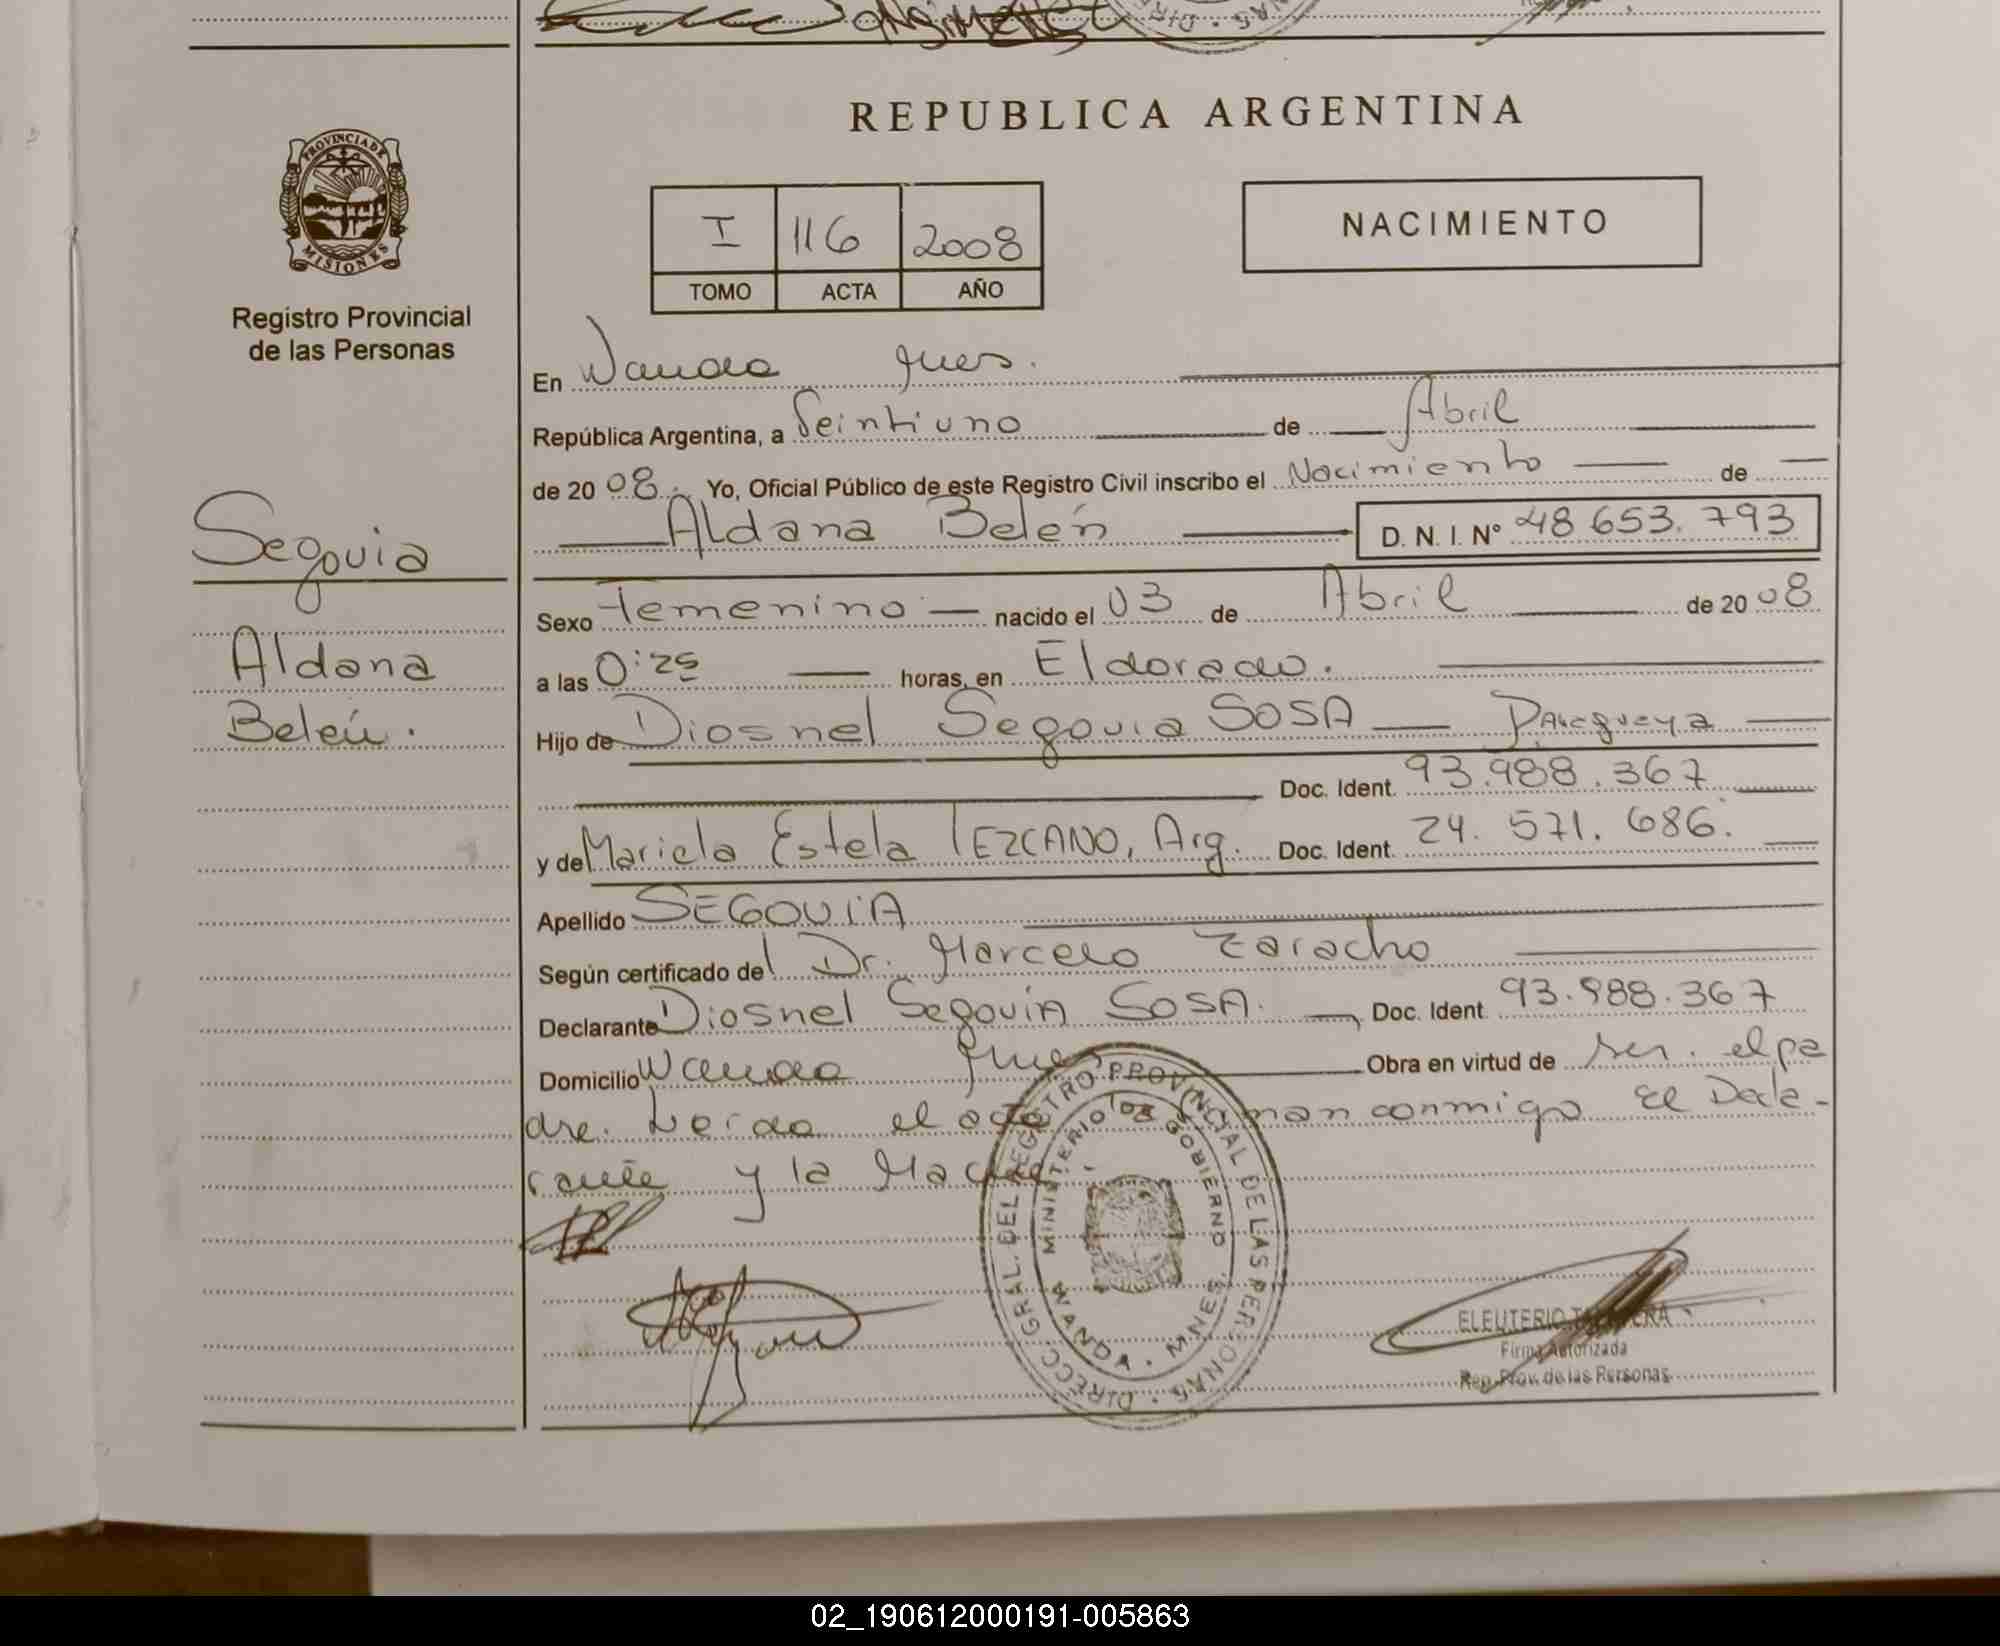 REPUBLICA ARGENTINA
PROVINCIA DE MISIONES
Registro Provincial
de las Personas
I 116 2008
TOMO ACTA AÑO
NACIMIENTO
Segovia
Aldana
Belén.
En Wanda Mnes.
República Argentina, a Veintiuno de Abril
de 2008. Yo, Oficial Público de este Registro Civil inscribo el Nacimiento de
Aldana Belén D. N. I. N° 48 653.793
Sexo Femenino nacido el 03 de Abril de 2008
a las 0:25 horas, en Eldorado.
Hijo de Diosnel Segovia SOSA Paraguaya
Doc. Ident. 93.988.367
y de Mariela Estela LEZCANO, Arg. Doc. Ident. 24.571.686.
Apellido SEGOVIA
Según certificado del Dr. Marcelo Zaracho
Declarante Diosnel Segovia SOSA. Doc. Ident. 93.988.367
Domicilio Wanda Mnes Obra en virtud de ser el pa
dre. Leida el acta man conmigo El Decla-
rante y la Madre
DIRECC. GRAL. DEL REGISTRO PROVINCIAL DE LAS PERSONAS
MINISTERIO DE GOBIERNO
WANDA - MNES.
ELEUTERIO
Firma Autorizada
Reg. Prov. de las Personas
02_190612000191-005863